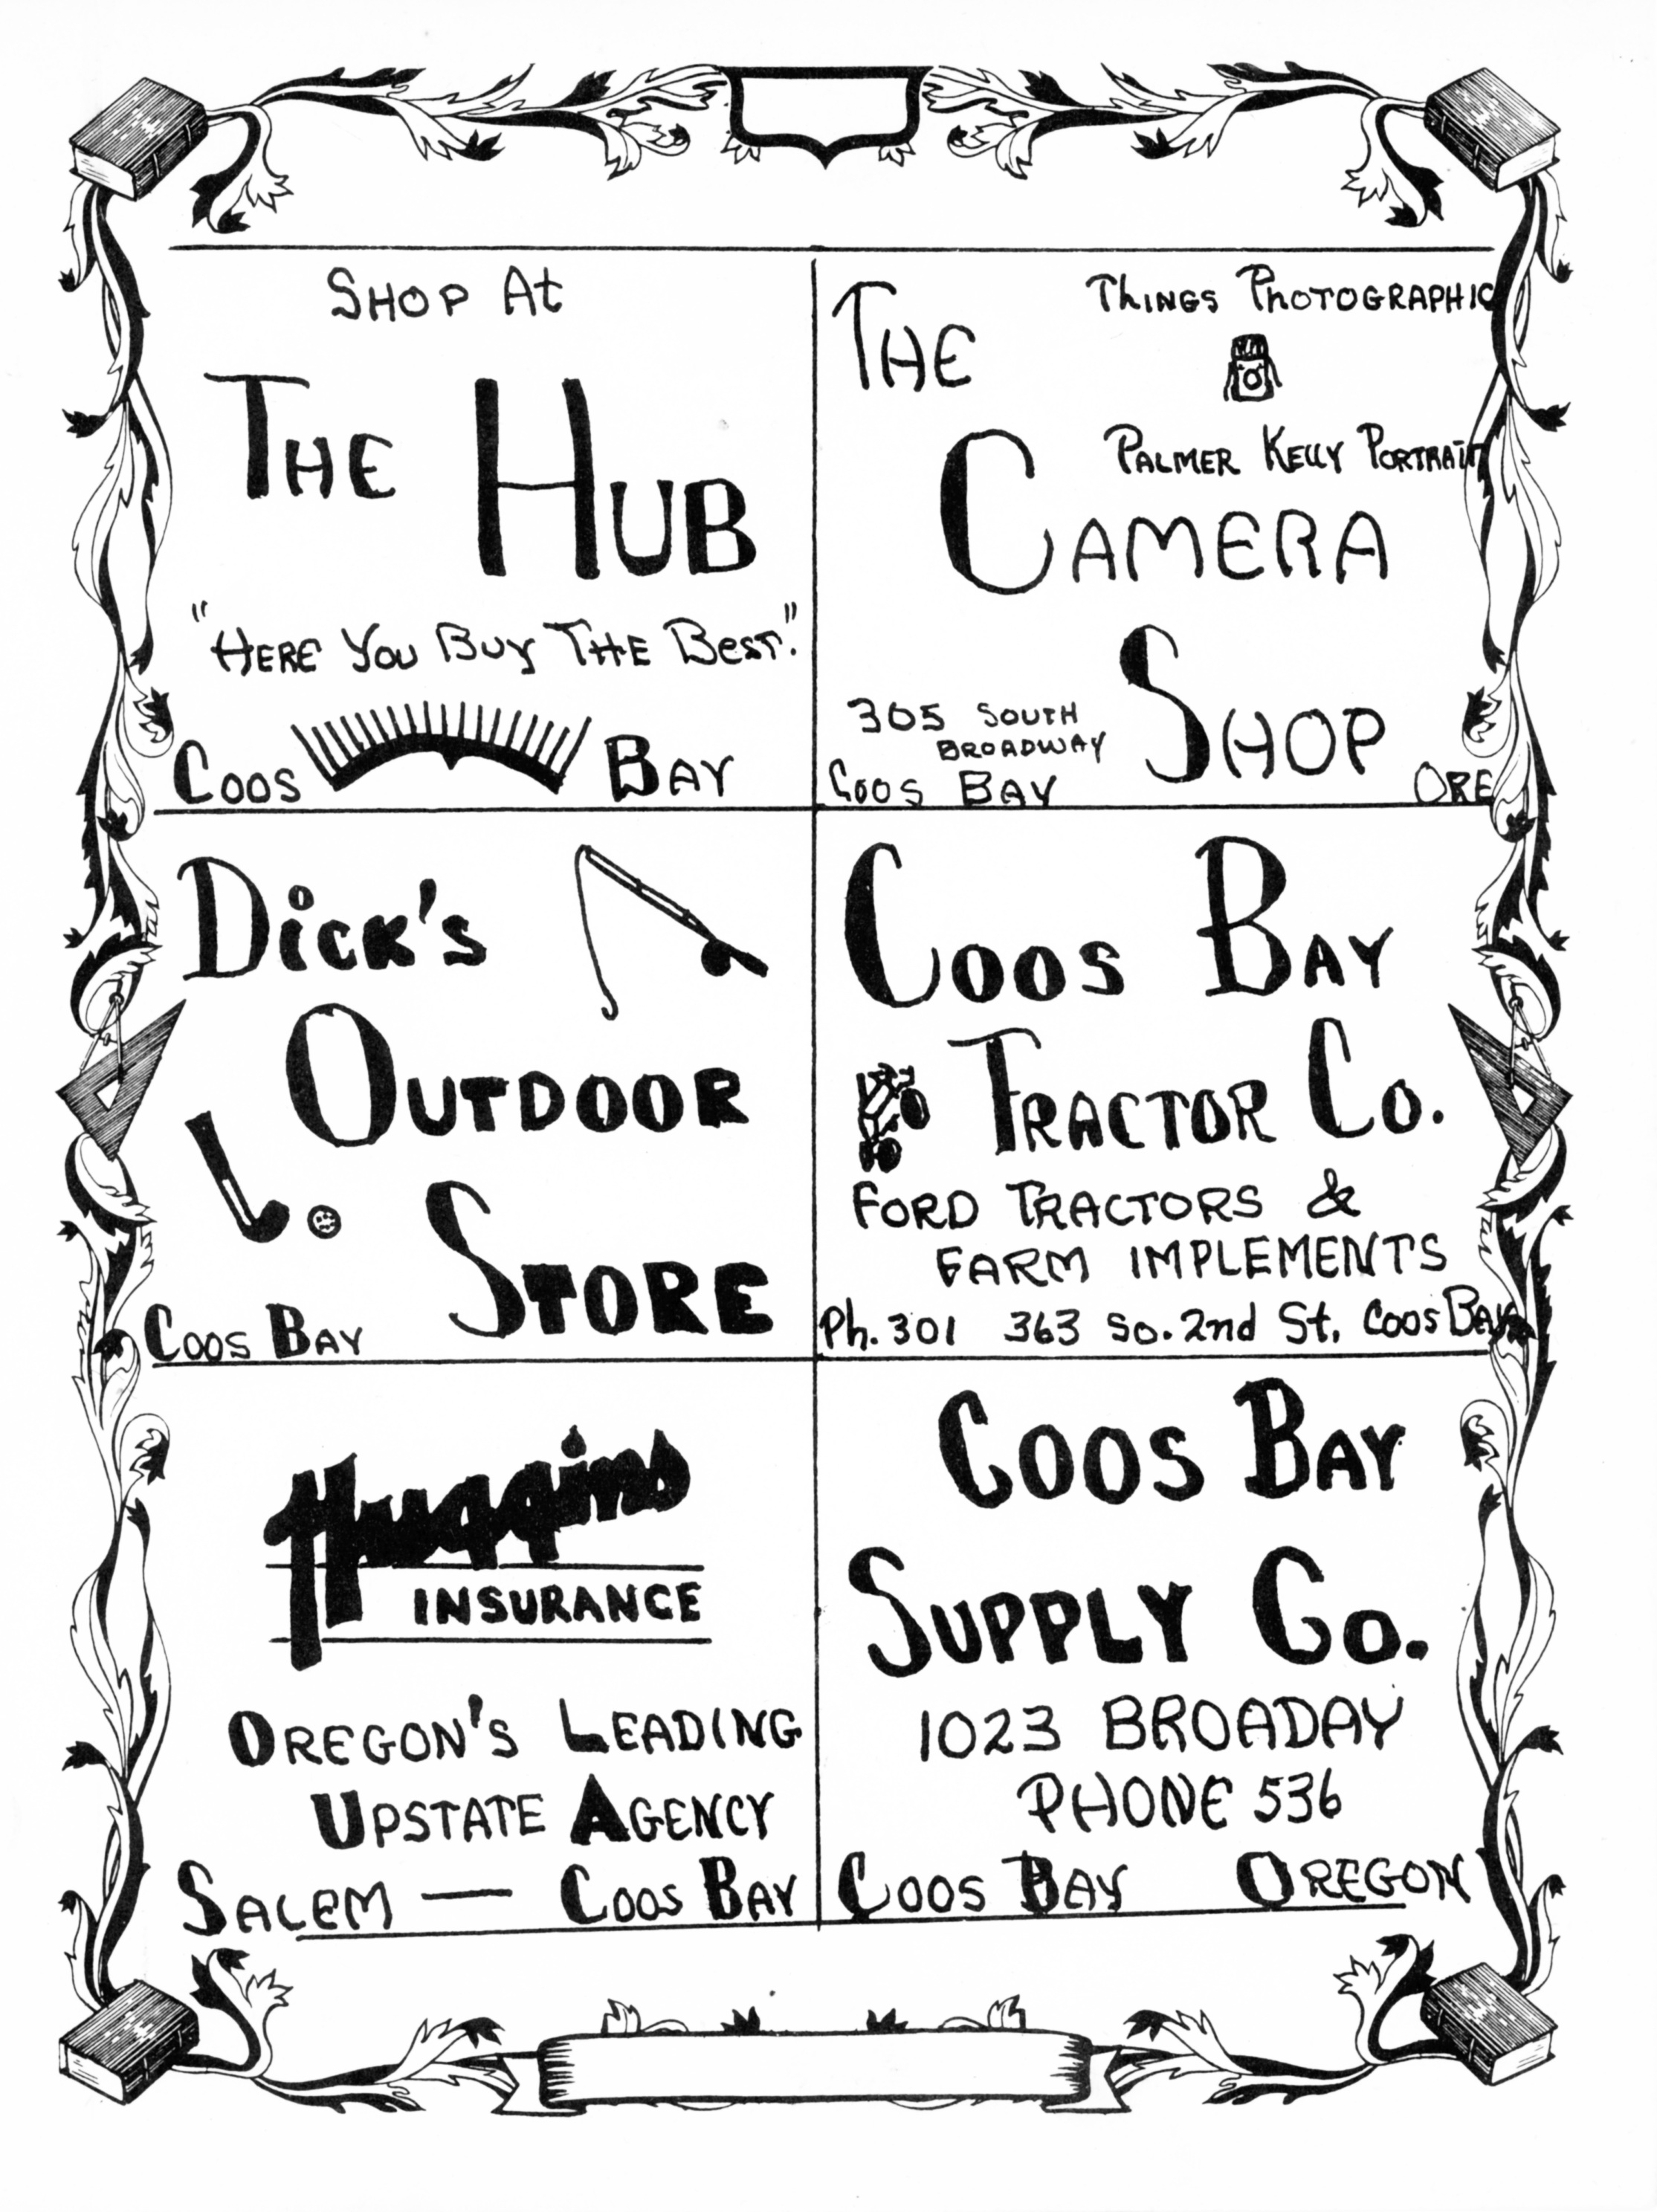 SHOP At
THE HUB
"HERE YOU BUY THE BEST."
COOS BAY
THINGS PHOTOGRAPHIC
THE
PALMER KELLY PORTRAIT
CAMERA
SHOP
305 SOUTH
BROADWAY
COOS BAY ORE
Dick's
OUTDOOR
STORE
COOS BAY
COOS BAY
TRACTOR Co.
FORD TRACTORS &
FARM IMPLEMENTS
Ph. 301 363 So. 2nd St. COOS BAY
Huggins
INSURANCE
OREGON'S LEADING
UPSTATE AGENCY
SALEM — COOS BAY
COOS BAY
SUPPLY Co.
1023 BROADAY
PHONE 536
COOS BAY OREGON